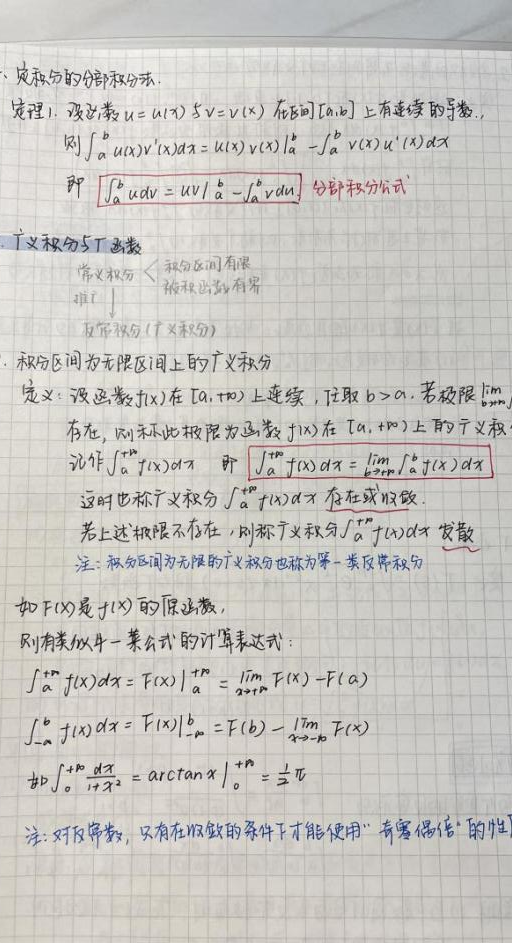 、定积分的分部积分法.
定理1. 设函数 u = u(x) 与 v = v(x) 在区间[a,b] 上有连续的导数.,
则 ∫_a^b u(x)v'(x)dx = u(x)v(x)|_a^b - ∫_a^b v(x)u'(x)dx
即 ∫_a^b udv = uv|_a^b - ∫_a^b vdu 分部积分公式
. 广义积分与Γ函数
常义积分 < 积分区间有限
被积函数有界
推广 ↓
反常积分(广义积分)
. 积分区间为无限区间上的广义积分
定义: 设函数f(x)在 [a,+∞) 上连续, 任取 b > a. 若极限 lim_{b→+∞} ∫
存在, 则称此极限为函数 f(x) 在 [a,+∞) 上的广义积
记作 ∫_a^{+∞} f(x)dx 即 ∫_a^{+∞} f(x)dx = lim_{b→+∞} ∫_a^b f(x)dx
这时也称广义积分 ∫_a^{+∞} f(x)dx 存在或收敛.
若上述极限不存在, 则称广义积分 ∫_a^{+∞} f(x)dx 发散
注: 积分区间为无限的广义积分也称为第一类反常积分
如 F(x)是 f(x) 的原函数,
则有类似牛-莱公式的计算表达式:
∫_a^{+∞} f(x)dx = F(x)|_a^{+∞} = lim_{x→+∞} F(x) - F(a)
∫_{-∞}^b f(x)dx = F(x)|_{-∞}^b = F(b) - lim_{x→-∞} F(x)
如 ∫_0^{+∞} dx/(1+x²) = arctan x|_0^{+∞} = 1/2 π
注: 对反常数, 只有在收敛的条件下才能使用"奇零偶倍"的性